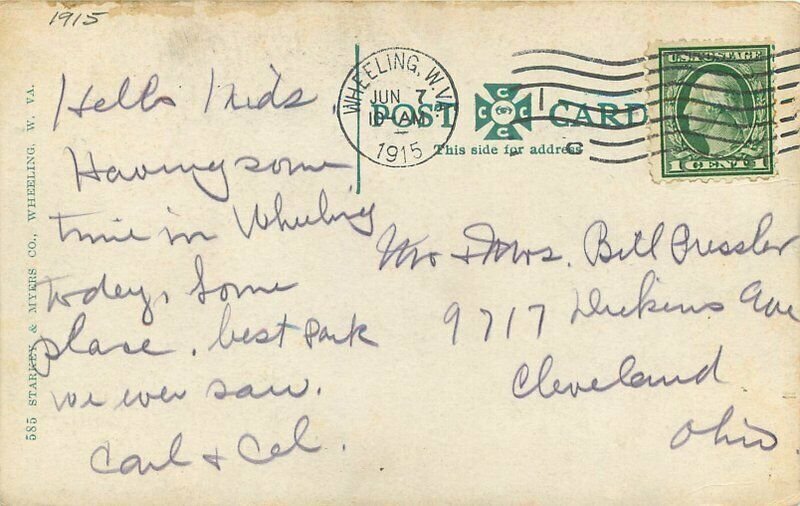 1915
Hello Kids.
Having some
time in Wheeling
today. Some
place. best park
we ever saw.
Carl & Cel.
585 STARKEY & MYERS CO., WHEELING, W. VA.
WHEELING, W.VA.
JUN 7
10-AM
1915
POST CARD
C C C C
This side for address
U.S. POSTAGE
1 CENT 1
Mr & Mrs. Bill Pressler
9717 Dickens Ave
Cleveland
Ohio